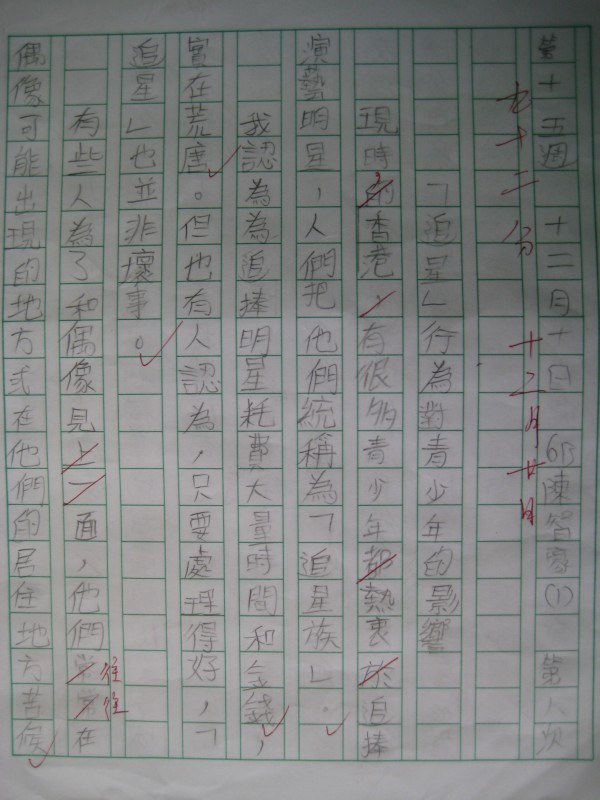 第十五週 十二月十日 6B陳智豪(1) 第八次
九十二分 十二月廿日
「追星」行為對青少年的影響
現時的香港,有很多青少年都熱衷於追捧
演藝明星,人們把他們統稱為「追星族」。
我認為為追捧明星耗費大量時間和金錢,
實在荒唐。但也有人認為,只要處理得好,「
追星」也並非壞事。
有些人為了和偶像見上一面,他們常常在
往往
偶像可能出現的地方或在他們的居住地方苦候